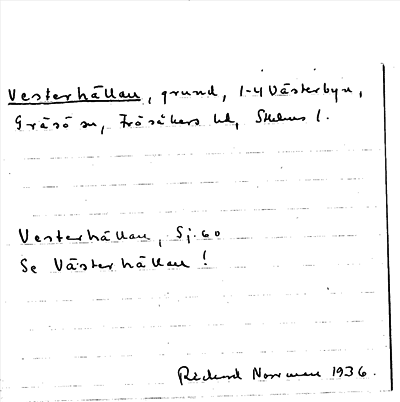 Vesterhällan, grund, 1-4 Västerbyn,
Gräsö sn, Frösåkers hd, Sthlms l.
Vesterhällan, Sj. 60
Se Västerhällan!
Rickard Norrman 1936.